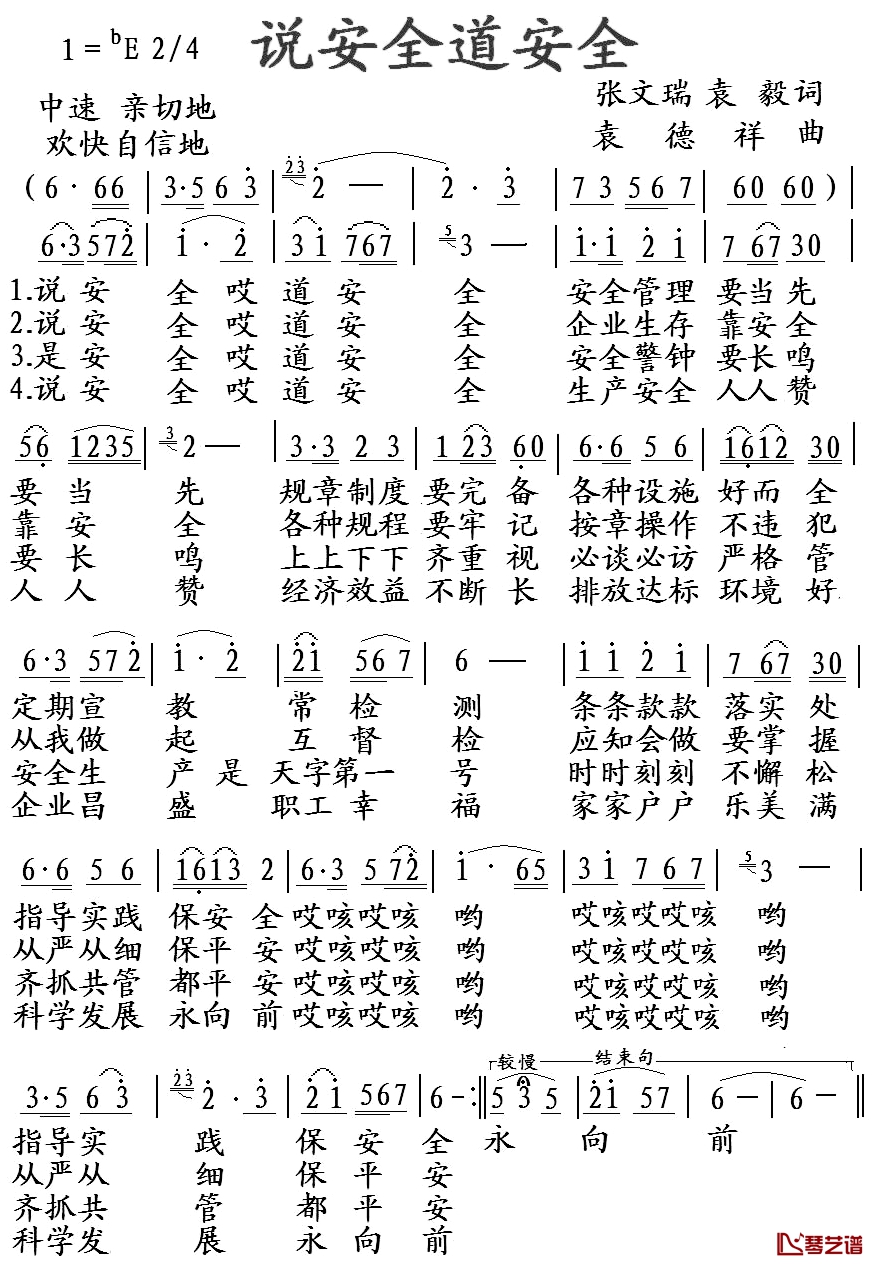 说安全道安全
1=ᵇE 2/4
张文瑞 袁 毅词
中速 亲切地
袁 德 祥 曲
欢快自信地
(6· 66 | 3·5 6 3 | 23 2 — | 2· 3 | 7 3 5 6 7 | 60 60) |
6·3 572 | 1· 2 | 3 1 767 | 5 3 — | 1·1 2 1 | 7 67 30 |
1.说 安 全 哎 道 安 全 安全管理 要当先
2.说 安 全 哎 道 安 全 企业生存 靠安全
3.是 安 全 哎 道 安 全 安全警钟 要长鸣
4.说 安 全 哎 道 安 全 生产安全 人人赞
56 1235 | 3 2 — | 3·3 2 3 | 1 23 60 | 6·6 5 6 | 1612 30 |
要 当 先 规章制度 要完备 各种设施 好而全
靠 安 全 各种规程 要牢记 按章操作 不违犯
要 长 鸣 上上下下 齐重视 必谈必访 严格管
人 人 赞 经济效益 不断长 排放达标 环境好
6·3 572 | 1· 2 | 21 567 | 6 — | 1 1 2 1 | 7 67 30 |
定期宣 教 常 检 测 条条款款 落实处
从我做 起 互 督 检 应知会做 要掌握
安全生 产 是 天字第一 号 时时刻刻 不懈松
企业昌 盛 职工 幸 福 家家户户 乐美满
6·6 5 6 | 1613 2 | 6·3 5 72 | 1· 65 | 3 1 7 67 | 5 3 — |
指导实践 保安 全 哎咳哎咳 哟 哎咳哎哎咳 哟
从严从细 保平 安 哎咳哎咳 哟 哎咳哎哎咳 哟
齐抓共管 都平 安 哎咳哎咳 哟 哎咳哎哎咳 哟
科学发展 永向 前 哎咳哎咳 哟 哎咳哎哎咳 哟
较慢 结束句
3·5 6 3 | 23 2· 3 | 21 567 | 6 - :‖ 5 3 5 | 21 57 | 6 — | 6 — ‖
指导实 践 保 安 全 永 向 前
从严从 细 保 平 安
齐抓共 管 都 平 安
科学发 展 永 向 前
琴艺谱